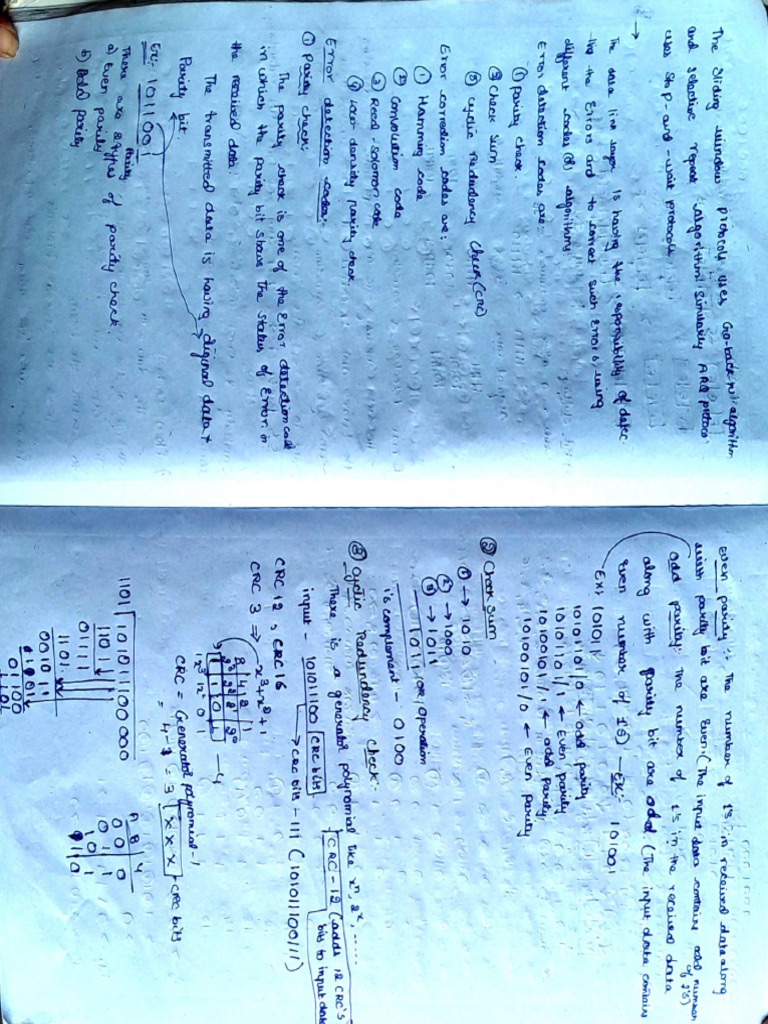 The sliding window protocol uses Go-back-N algorithm
and selective repeat algorithm. Similarly ARQ protoco
uses stop-and-wait protocols
→ The data link layer is having the responsibility of detec-
ting the Errors and to correct such Errors using
different codes (or) algorithms
Error detection codes are:
① parity check.
② check sum
③ cyclic redudency check (CRC)
Error correction codes are:
① Hamming code
② convolution code
③ Reed-solomon code
④ Low density parity check.
Error detection codes:-
① Parity check:
The parity check is one of the Error detection code
in which the parity bit shows the status of Error in
the received data.
The transmitted data is having original data +
Parity bit
Ex: 101100 1
Parity
There are 2 types of parity check.
a) Even parity
b) Odd parity
Even parity :- The number of 1's in received data along
with parity bit are Even. (The input data contains odd number
of 1's)
odd parity: The number of 1's in the received data
along with parity bit are odd (The input data contains
even number of 1's) Ex: 101001
Ex: 101011
1010110/0 ← odd parity
1010110/1 ← Even parity
1010010/1 ← odd parity
1010010/0 ← Even parity
② Check sum
① → 1010
② → 1000
③ → 1011
1011 OR operation
1s complement - 0100
③ Cyclic Redundency check:-
There is a generator polynomial like
input - 10101100 CRC bits
CRC-12 (adds 12 CRC's
bits to input data
→ CRC bits - 111 (10101100111)
CRC 12, CRC 16
CRC 3 ⇒ x³+x²+1
8 4 2 1
2³ 2² 2¹ 2⁰
1 1 0 1 - 4
x³ x² 0 1
CRC = Generator polynomial - 1
= 4-1 = 3 x x x → CRC bits
A B Y
0 0 0
0 1 1
1 0 1
1 1 0
1101
1101
01111
1101
001011
01100
1101